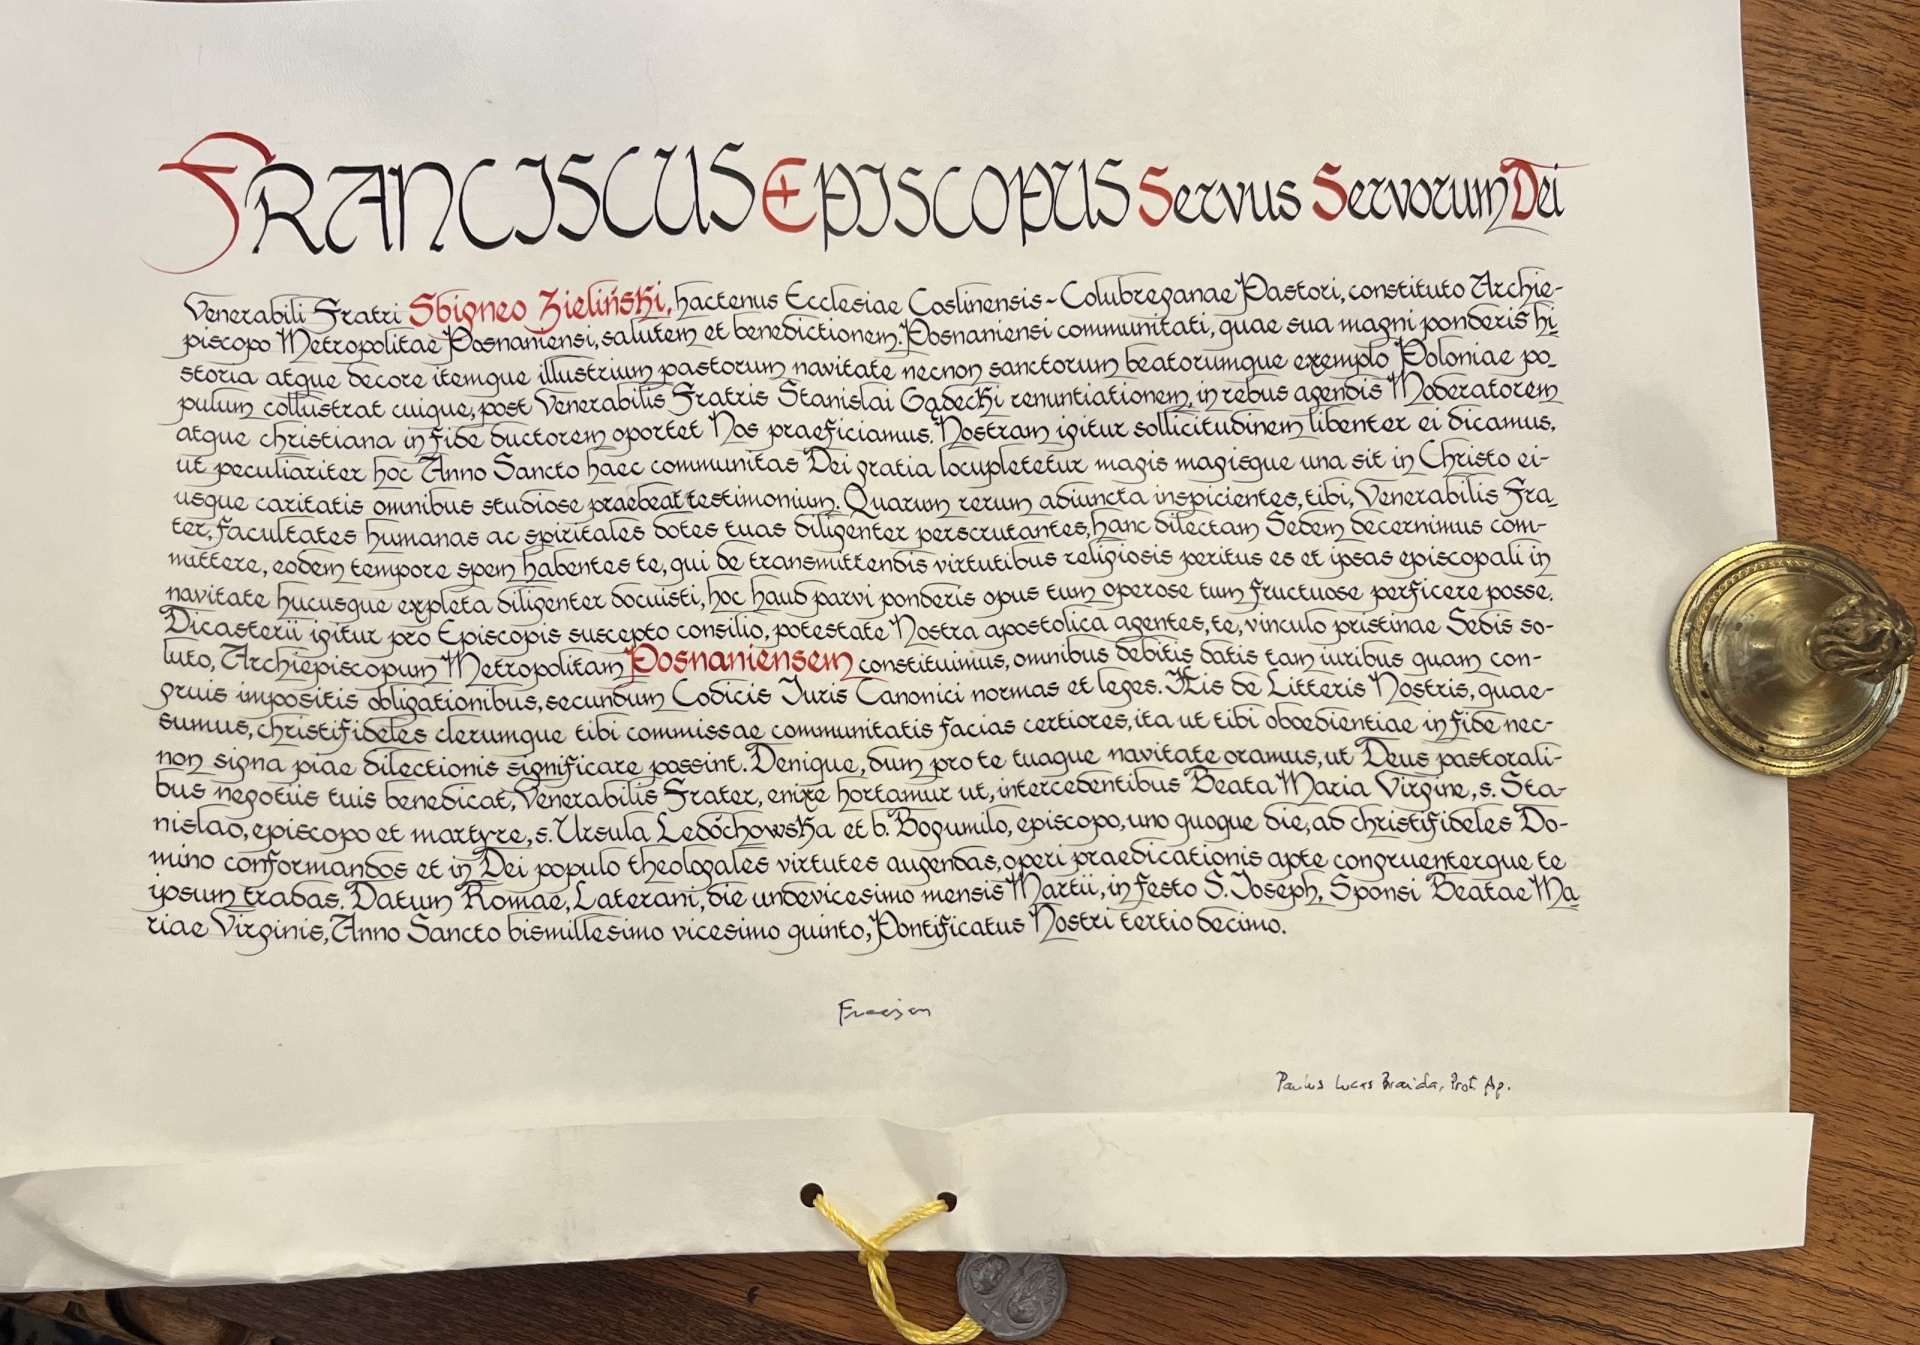 FRANCISCUS EPISCOPUS Servus Servorum Dei
Venerabili Fratri Sbigneo Zieliński, hactenus Ecclesiae Coslinensis-Colubreganae Pastori, constituto Archie-
piscopo Metropolitae Posnaniensi, salutem et benedictionem. Posnaniensi communitati, quae sua magni ponderis hi-
storia atque decore itemque illustrium pastorum navitate necnon sanctorum beatorumque exemplo Poloniae po-
pulum collustrat cuique, post Venerabilis Fratris Stanislai Gądecki renuntiationem, in rebus agendis Moderatorem
atque christiana in fide ductorem oportet Nos praeficiamus. Nostram igitur sollicitudinem libenter ei dicamus,
ut peculiariter hoc Anno Sancto haec communitas Dei gratia locupletetur magis magisque una sit in Christo ei-
usque caritatis omnibus studiose praebeat testimonium. Quarum rerum adiuncta inspicientes, tibi, Venerabilis Fra-
ter, facultates humanas ac spiritales dotes tuas diligenter perscrutantes, hanc dilectam Sedem decernimus com-
mittere, eodem tempore spem habentes te, qui de transmittendis virtutibus religiosis peritus es et ipsas episcopali in
navitate hucusque expleta diligenter docuisti, hoc haud parvi ponderis opus tum operose tum fructuose perficere posse.
Dicasterii igitur pro Episcopis suscepto consilio, potestate Nostra apostolica agentes, te, vinculo pristinae Sedis so-
luto, Archiepiscopum Metropolitam Posnaniensem constituimus, omnibus debitis datis tam iuribus quam con-
gruis impositis obligationibus, secundum Codicis Iuris Canonici normas et leges. His de Litteris Nostris, quae-
sumus, christifideles clerumque tibi commissae communitatis facias certiores, ita ut tibi oboedientiae in fide nec-
non signa piae dilectionis significare possint. Denique, dum pro te tuaque navitate oramus, ut Deus pastorali-
bus negotiis tuis benedicat, Venerabilis Frater, enixe hortamur ut, intercedentibus Beata Maria Virgine, s. Sta-
nislao, episcopo et martyre, s. Ursula Ledóchowska et b. Bogumilo, episcopo, uno quoque die, ad christifideles Do-
mino conformandos et in Dei populo theologales virtutes augendas, operi praedicationis apte congruenterque te
ipsum tradas. Datum Romae, Laterani, die undevicesimo mensis Martii, in festo S. Ioseph, Sponsi Beatae Ma-
riae Virginis, Anno Sancto bismillesimo vicesimo quinto, Pontificatus Nostri tertio decimo.
Paulus Lucas Braida, Prot. Ap.